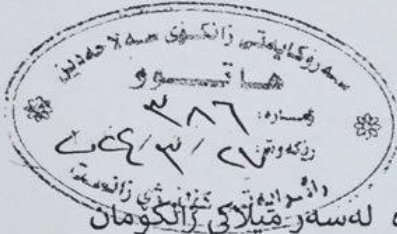 سەرۆکایەتی زانکۆی سەلاحەدین
هاتوو
ژمارە: ٣٨٦
ڕێکەوتی: ٢٠٢٤/٣/٢٧
لەسەر میلاکی زانکۆمان